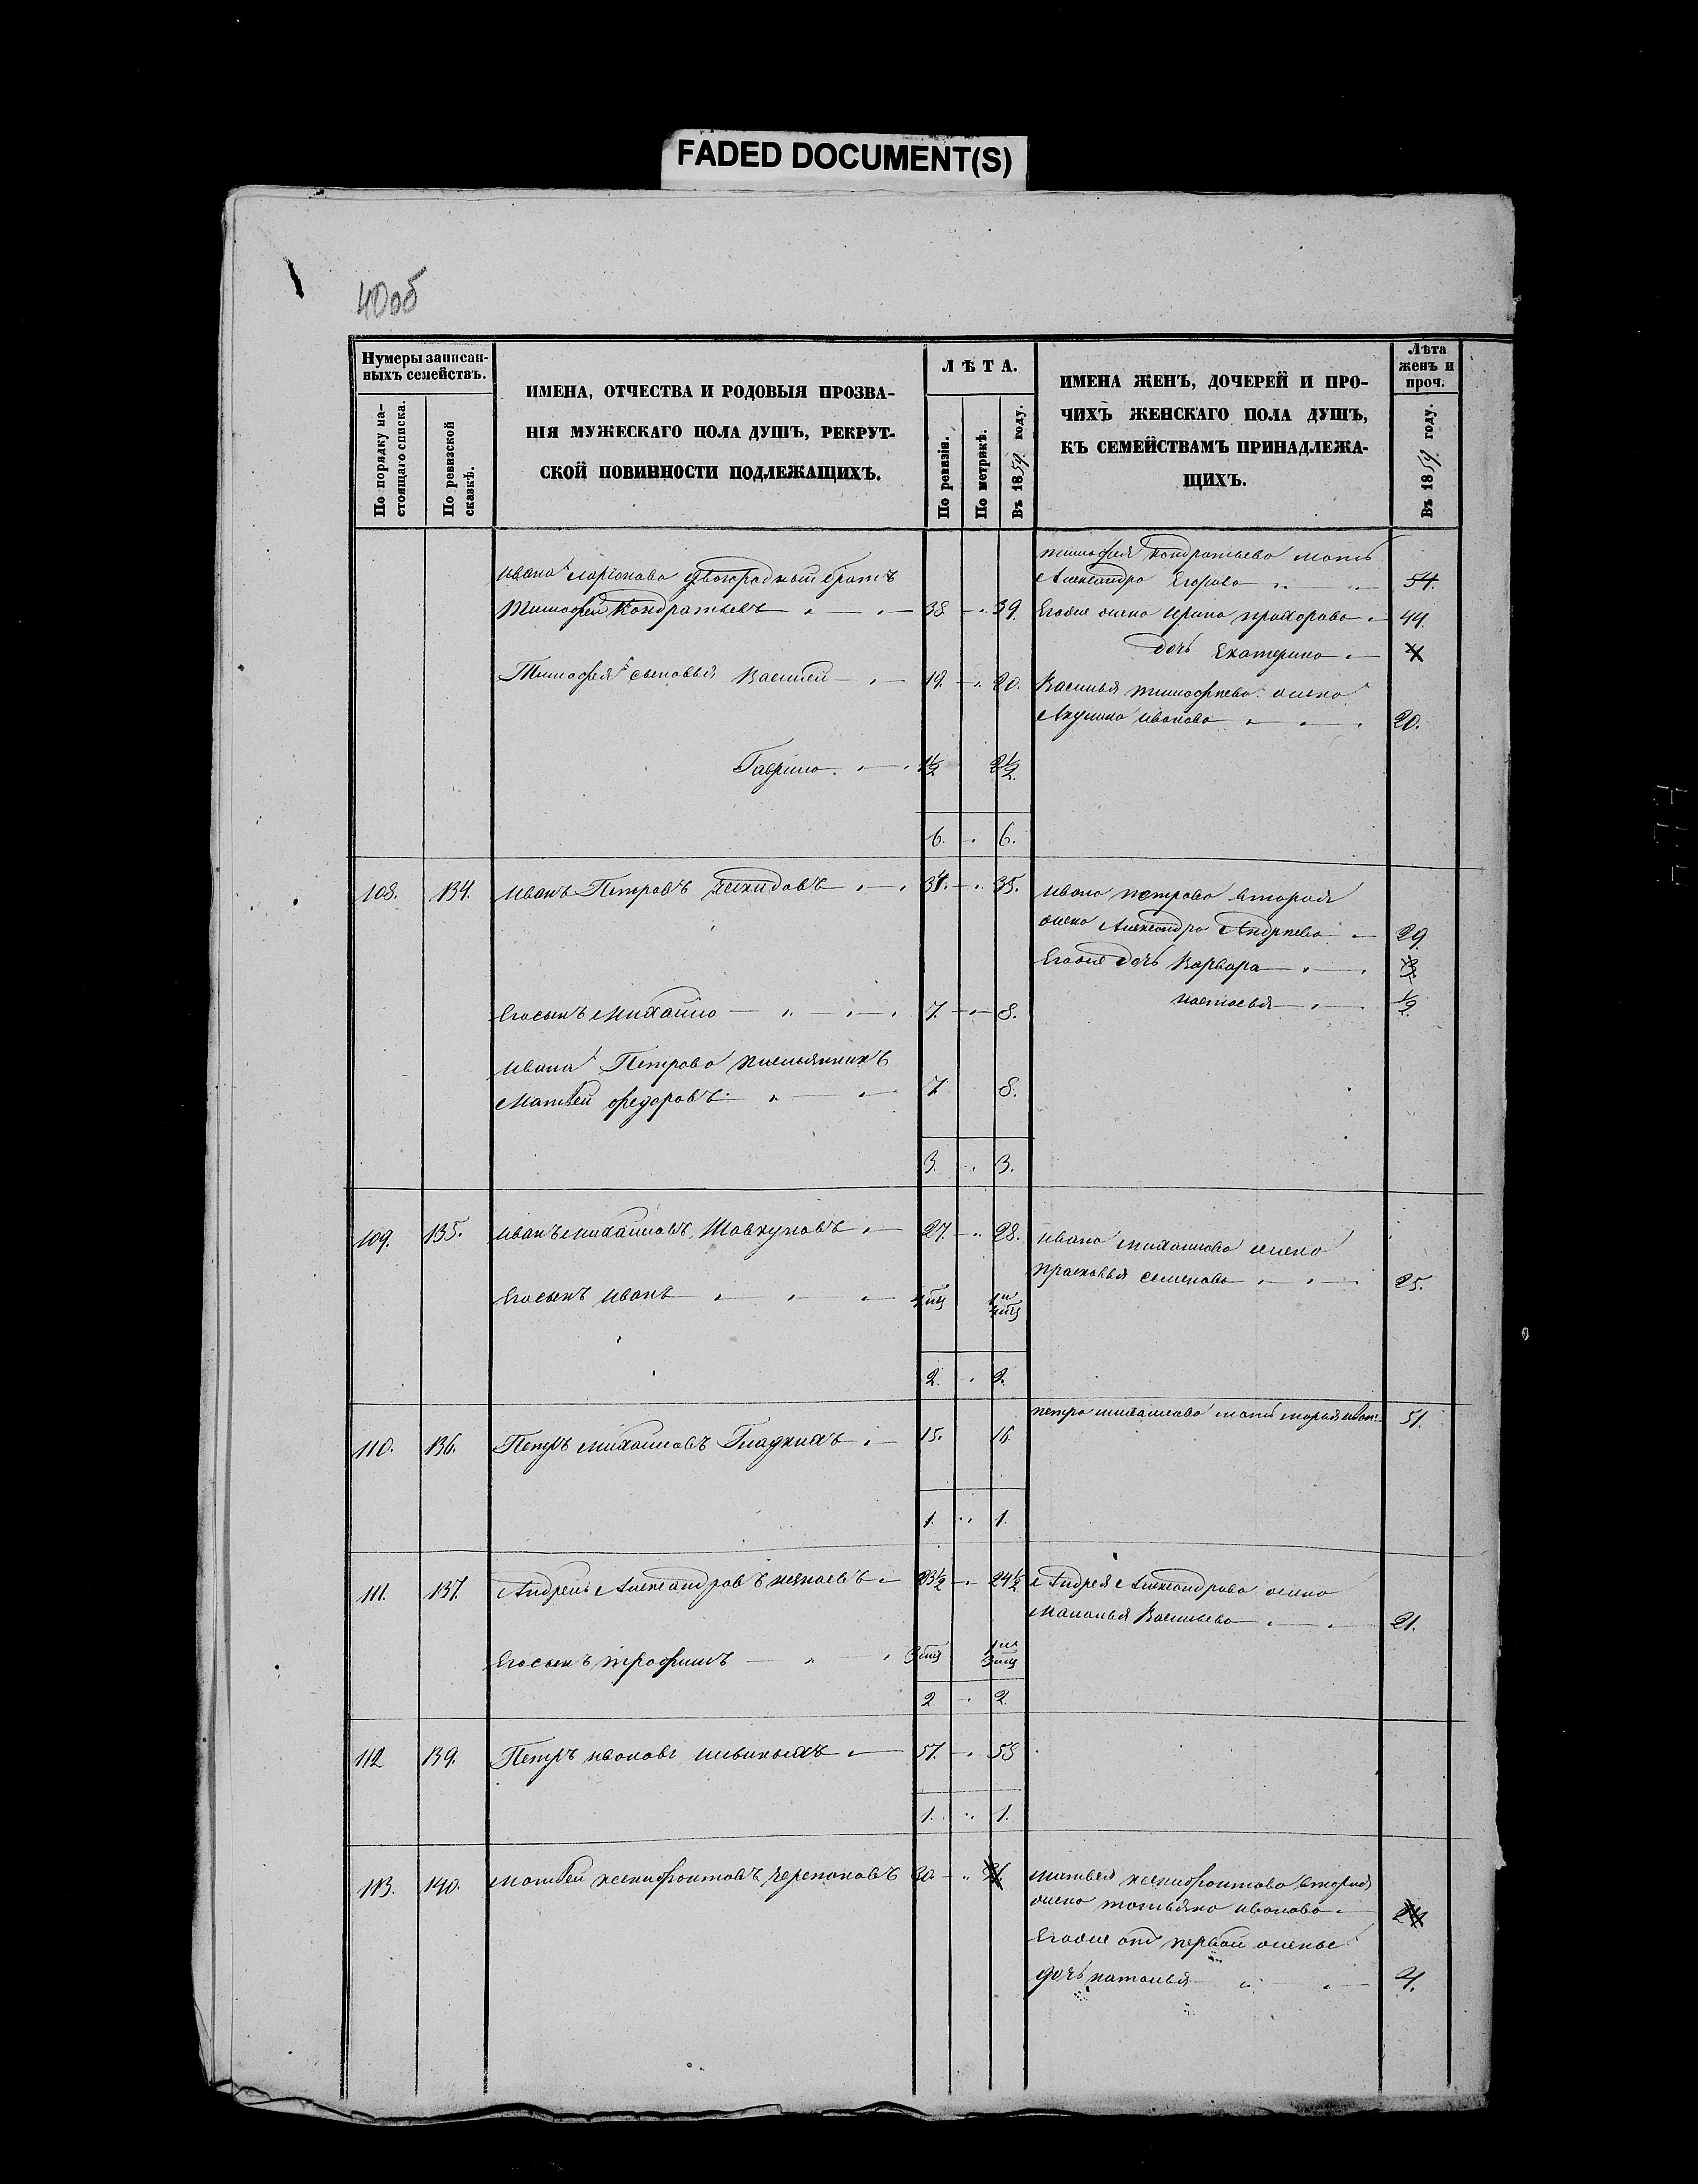 FADED DOCUMENT(S)
40об
Нумеры записан-
ныхъ семействъ.
По порядку на-
стоящаго списка.
По ревизской
сказкѣ.
ИМЕНА, ОТЧЕСТВА И РОДОВЫЯ ПРОЗВА-
НІЯ МУЖЕСКАГО ПОЛА ДУШЪ, РЕКРУТ-
СКОЙ ПОВИННОСТИ ПОДЛЕЖАЩИХЪ.
ЛѢТА.
По ревизіи.
По метрикѣ.
Въ 1859 году.
ИМЕНА ЖЕНЪ, ДОЧЕРЕЙ И ПРО-
ЧИХЪ ЖЕНСКАГО ПОЛА ДУШЪ,
КЪ СЕМЕЙСТВАМЪ ПРИНАДЛЕЖА-
ЩИХЪ.
Лѣта
женъ и
проч.
Въ 1859 году.
тимофея кондратьева мать
Александра Егорова 54.
Ивана Ларіонова двоюродный братъ
Тимофей Кондратьевъ 38 39.
Егоже жена Ирина прохорова 44.
дочь Екатерина
Тимофея сыновья Василей 19. 20.
Василья тимофѣева жена
Акулина иванова 20.
Гаврило 1½ 2½
6. 6.
108. 134. Иванъ Петровъ 34. 35.
Ивана петрова вторая
жена Александра Андреева 29
Егоже дочь Варвара
настасья ½
Егосынъ Михайло 7. 8.
Ивана Петрова племянникъ
Матвей федоровъ 7 8.
3. 3.
109. 135. Иванъ михайловъ Шавкуновъ 27. 28.
Ивана михайлова жена
прасковья семенова 25.
Егосынъ Иванъ
2. 2.
петра михайлова мать марья иван: 51.
110. 136. Петръ михайловъ Гладкихъ 15. 16
1. 1.
111. 137. Андрей Александровъ 23½ 24½
Андрея Александрова жена
Маланья Васильева 21.
Егосынъ трофимъ
2. 2.
112 139. Петръ ивановъ 57. 58
1. 1.
113. 140. Матвей ксенофонтовъ Черепановъ 30.
Матвея ксенофонтова вторая
жена татьяна иванова
Егоже отъ первой жены
дочь наталья 4.